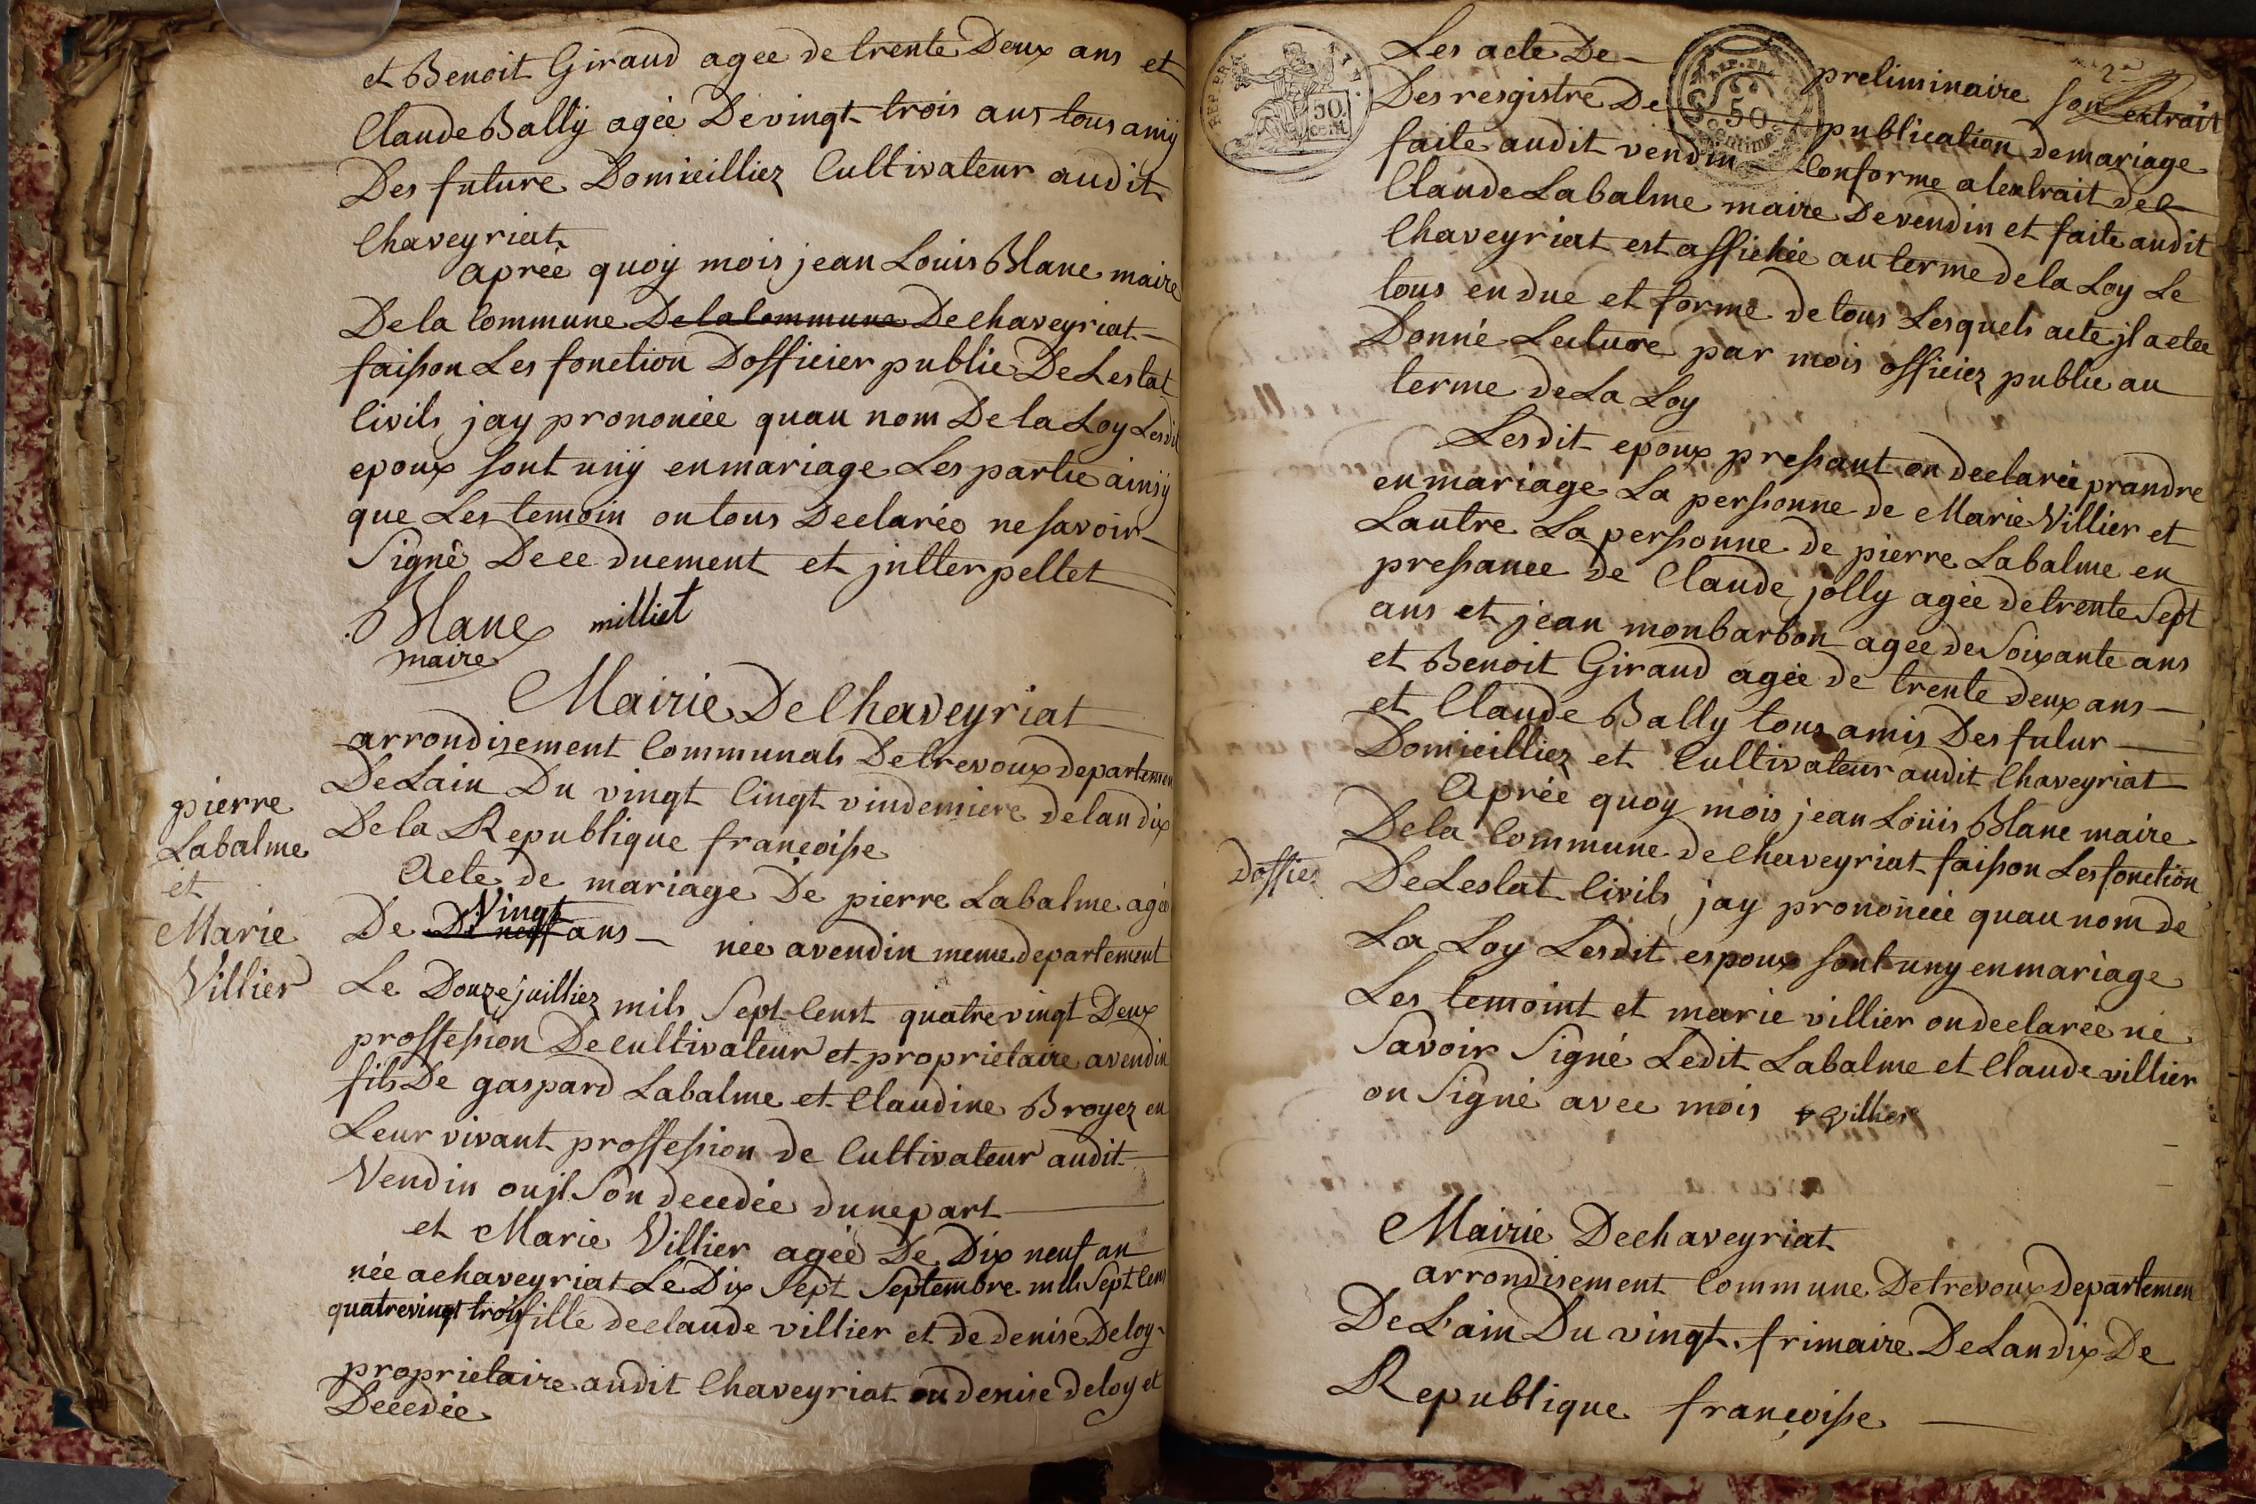 et Benoit Giraud agee de trente Deux ans et
Claude Bally agée De vingt trois ans tous amij
Des future Domicilliez Cultivateur audit
Chaveyriat
aprée quoy mois jean Louis Blanc maire
De la Commune De la Commune De Chaveyriat
faisson Les fonction Dofficier public De Lestat
Civils jay prononcée quau nom De la Loy Lesdit
epoux sont unij en mariage Les partie ainsij
que Les temoin on tous Declarée ne savoir
Signé De ce duement et jntterpellet
Blanc milliet
maire
Mairie De Chaveyriat
arrondisement Communals De trevoux departemen
De Lain Du vingt Cingt vindemiere de lan dix
De la Republique francoisse
pierre
Labalme
et
Marie
Villier
Acte de mariage De pierre Labalme agée
Vingt
De Di neuf ans née a vendin meme departement
Le Douze juilliez mils Sept Censt quatre vingt Deux
proffession De cultivateur et proprietaire a vendin
fils De gaspard Labalme et Claudine Broyez en
Leur vivant proffession de Cultivateur audit
Vendin ou jl Son decedée dune part
et Marie Villier agée De Dix neuf an
née a chaveyriat Le Dix Sept Septembre mils Sept Cens
quatrevingt trois fille de claude villier et de denise Deloy
proprietaire audit Chaveyriat ou denise deloy et
Decedée
REP. FRA.
50
cent.
REP. FRA
50
centimes
Les acte De preliminaire son extrait
Des resgistre De publication de mariage
faite audit vendin Conforme a lextrait de
Claude Labalme maire De vendin et faite audit
Chaveyriat est affichée au terme de la Loy Le
tous en due et forme de tous Lesquels acte jl a etee
Donné Lecture par mois officiez public au
terme de La Loy
Lesdit epoux pressant on declarée prandre
en mariage La perssonne de Marie Villier et
Lautre La perssonne de pierre Labalme en
pressance de Claude jolly agée de trente Sept
ans et jean monbarbon agee de Soixante ans
et Benoit Giraud agée de trente deux ans
et Claude Bally tous amis Des futur
Domicilliez et Cultivateur audit Chaveyriat
Aprée quoy mois jean Loüis Blanc maire
De la Commune de Chaveyriat faisson Les fonction
Doffice
De Lestat Civils jay prononcée quau nom de
La Loy Lesdit espoux sont uny en mariage
Les temoint et marie villier on declarée ne
Savoir Signé Ledit Labalme et Claude villier
on Signé avec mois villier
Mairie De chaveyriat
arrondisement Commune De trevoux departemen
De Lain Du vingt frimaire De Lan dix De
Republique françoisse